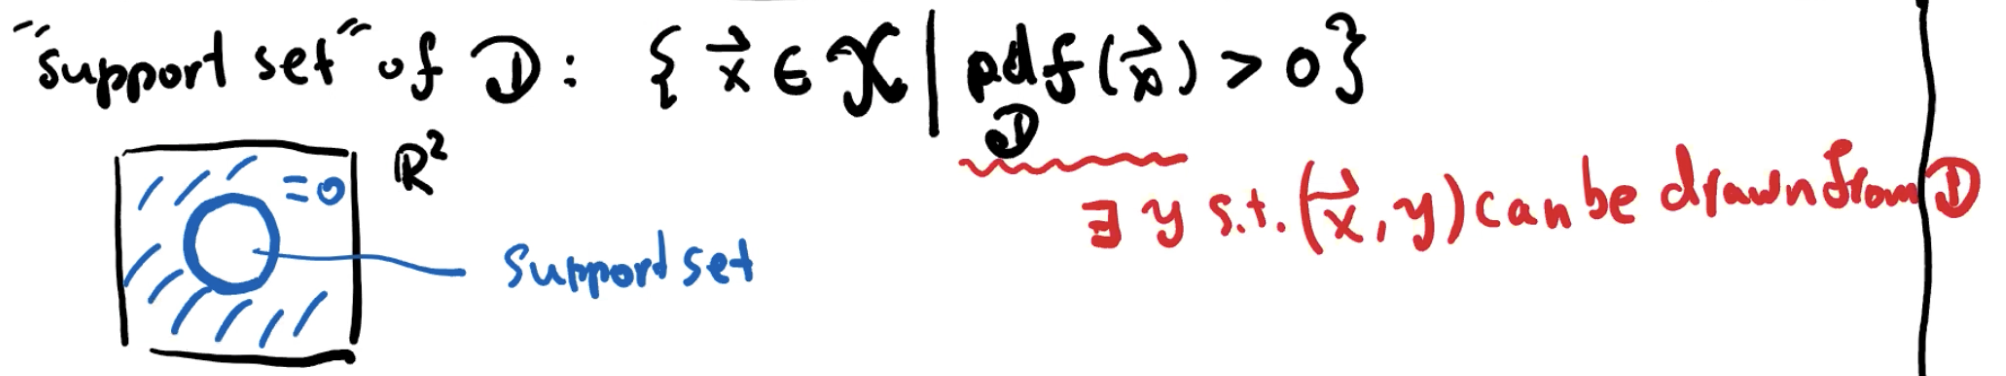 "support set" of 𝒟: { x⃗ ∈ 𝒳 | pdf_𝒟(x⃗) > 0}
= 0
ℝ²
∃ y s.t. (x⃗, y) can be drawn from 𝒟
support set